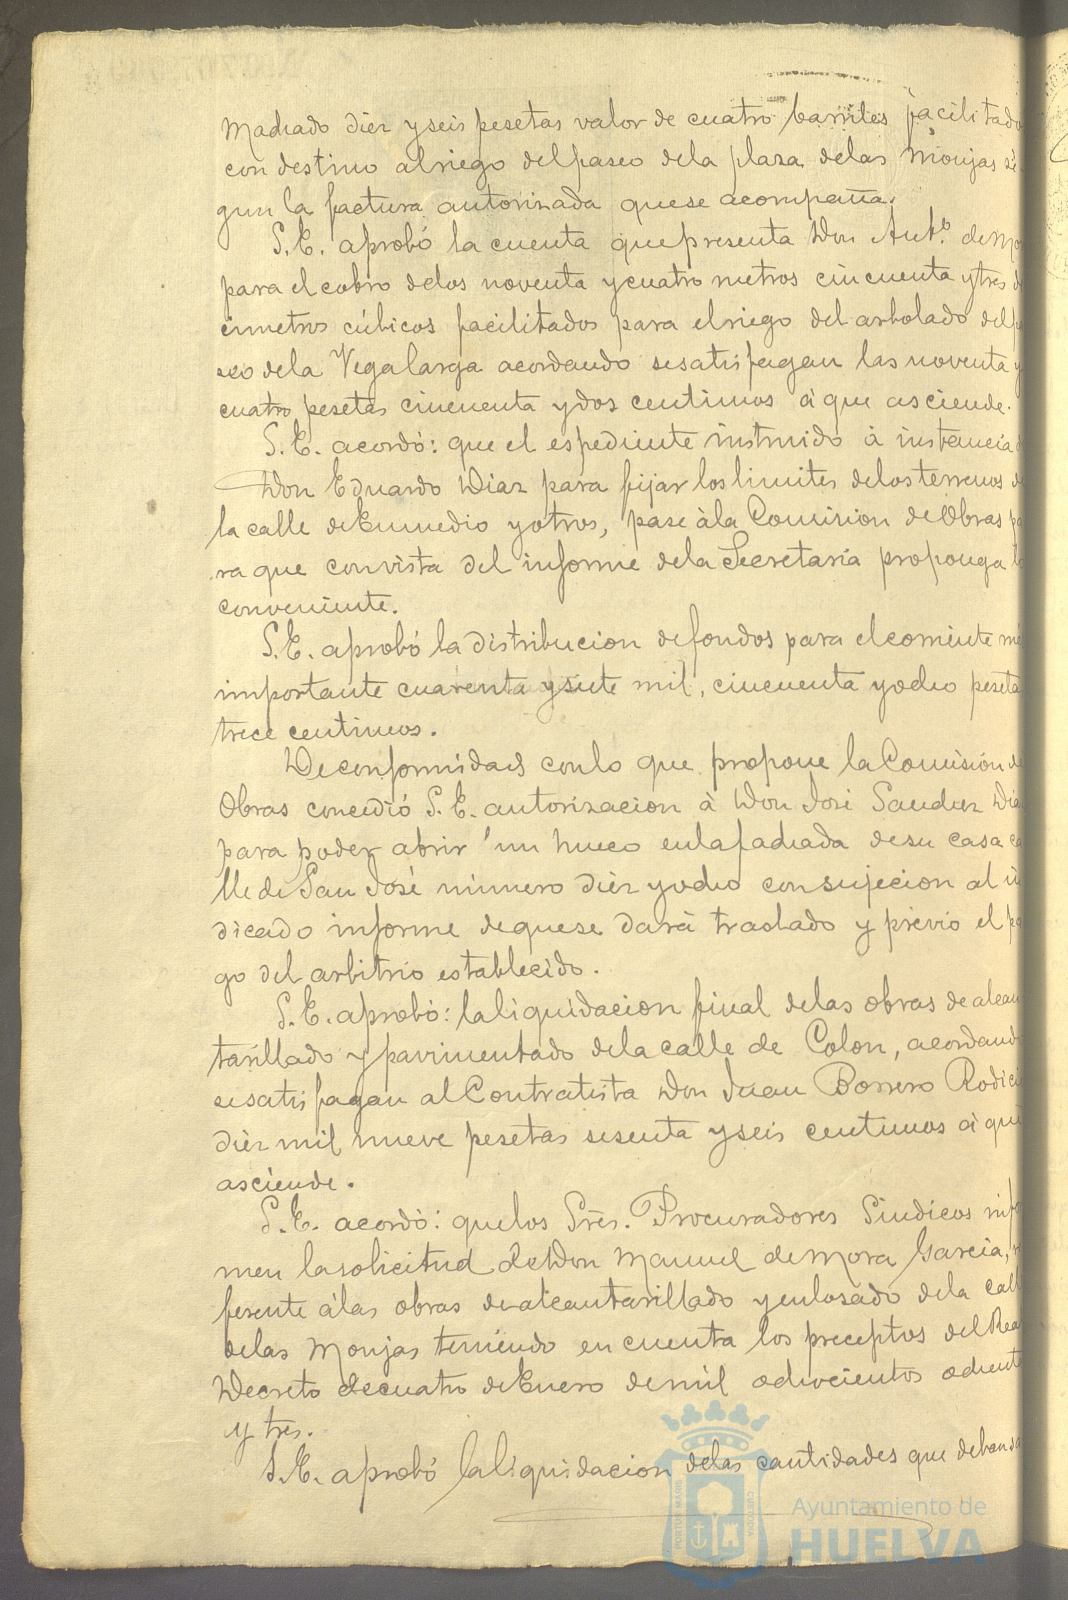 Machado diez y seis pesetas valor de cuatro barriles facilitado
con destino al riego del paseo de la plaza de las Monjas se
gun la factura autorizada que se acompaña.
S.E. aprobó la cuenta que presenta Don Ant.º de Mo
para el cobro de los noventa y cuatro metros cincuenta y tres d
cimetros cúbicos facilitados para el riego del arbolado del p
seo de la Vegalarga acordando se satisfagan las noventa y
cuatro pesetas cincuenta y dos centimos á que asciende.
S.E. acordó: que el espediente instruido á instancia
Don Eduardo Diaz para fijar los limites de los terrenos de
la calle de Enmedio y otros, pase á la Comision de Obras pa
ra que con vista del informe de la Secretaría proponga lo
conveniente.
S.E. aprobó la distribucion de fondos para el corriente me
importante cuarenta y siete mil, cincuenta y ocho peseta
trece centimos.
De conformidad con lo que propone la Comisión de
Obras concedió S.E. autorizacion á Don José Sanchez Dia
para poder abrir un hueco en la fachada de su casa ca
lle de San José número diez y ocho con sujecion al in
dicado informe de que se dará traslado y previo el pa
go del arbitrio establecido.
S.E. aprobó: la liquidacion final de las obras de alcan
tarillado y pavimentado de la calle de Colon, acordando
se satisfagan al Contratista Don Juan Borrero
diez mil nueve pesetas sesenta y seis centimos á que
asciende.
S.E. acordó: que los Sres. Procuradores Sindicos info
men la solicitud de Don Manuel de Mora Garcia, r
ferente á las obras de alcantarillado y enlosado de la call
de las Monjas teniendo en cuenta los preceptos del Rea
Decreto de cuatro de Enero de mil ochocientos ochenta
y tres.
S.E. aprobó la liquidacion de las cantidades que deben sa
PORTUS MARIS
CUSTODIA
Ayuntamiento de
HUELVA